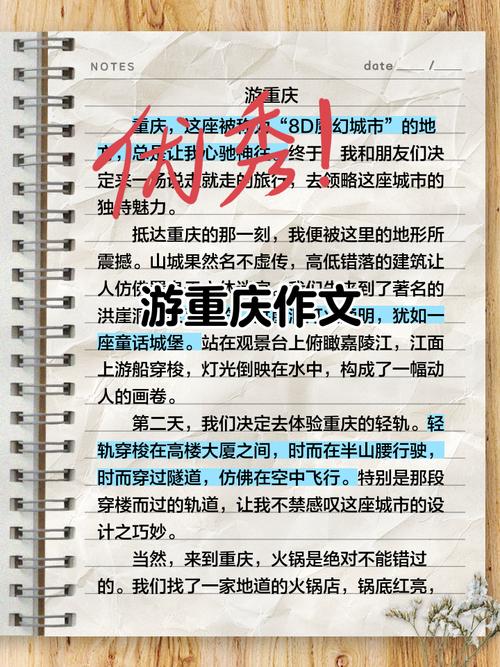 NOTES
date ____ / ____
游重庆
重庆，这座被称为“8D魔幻城市”的地
方，总是让我心驰神往。终于，我和朋友们决
定来一场说走就走的旅行，去领略这座城市的
独特魅力。
优秀！
抵达重庆的那一刻，我便被这里的地形所
震撼。山城果然名不虚传，高低错落的建筑让
人仿佛
来到了著名的
洪崖洞
明，犹如一
游重庆作文
座童话城堡。站在观景台上俯瞰嘉陵江，江面
上游船穿梭，灯光倒映在水中，构成了一幅动
人的画卷。
第二天，我们决定去体验重庆的轻轨。轻
轨穿梭在高楼大厦之间，时而在半山腰行驶，
时而穿过隧道，仿佛在空中飞行。特别是那段
穿楼而过的轨道，让我不禁感叹这座城市的设
计之巧妙。
当然，来到重庆，火锅是绝对不能错过
的。我们找了一家地道的火锅店，锅底红亮，